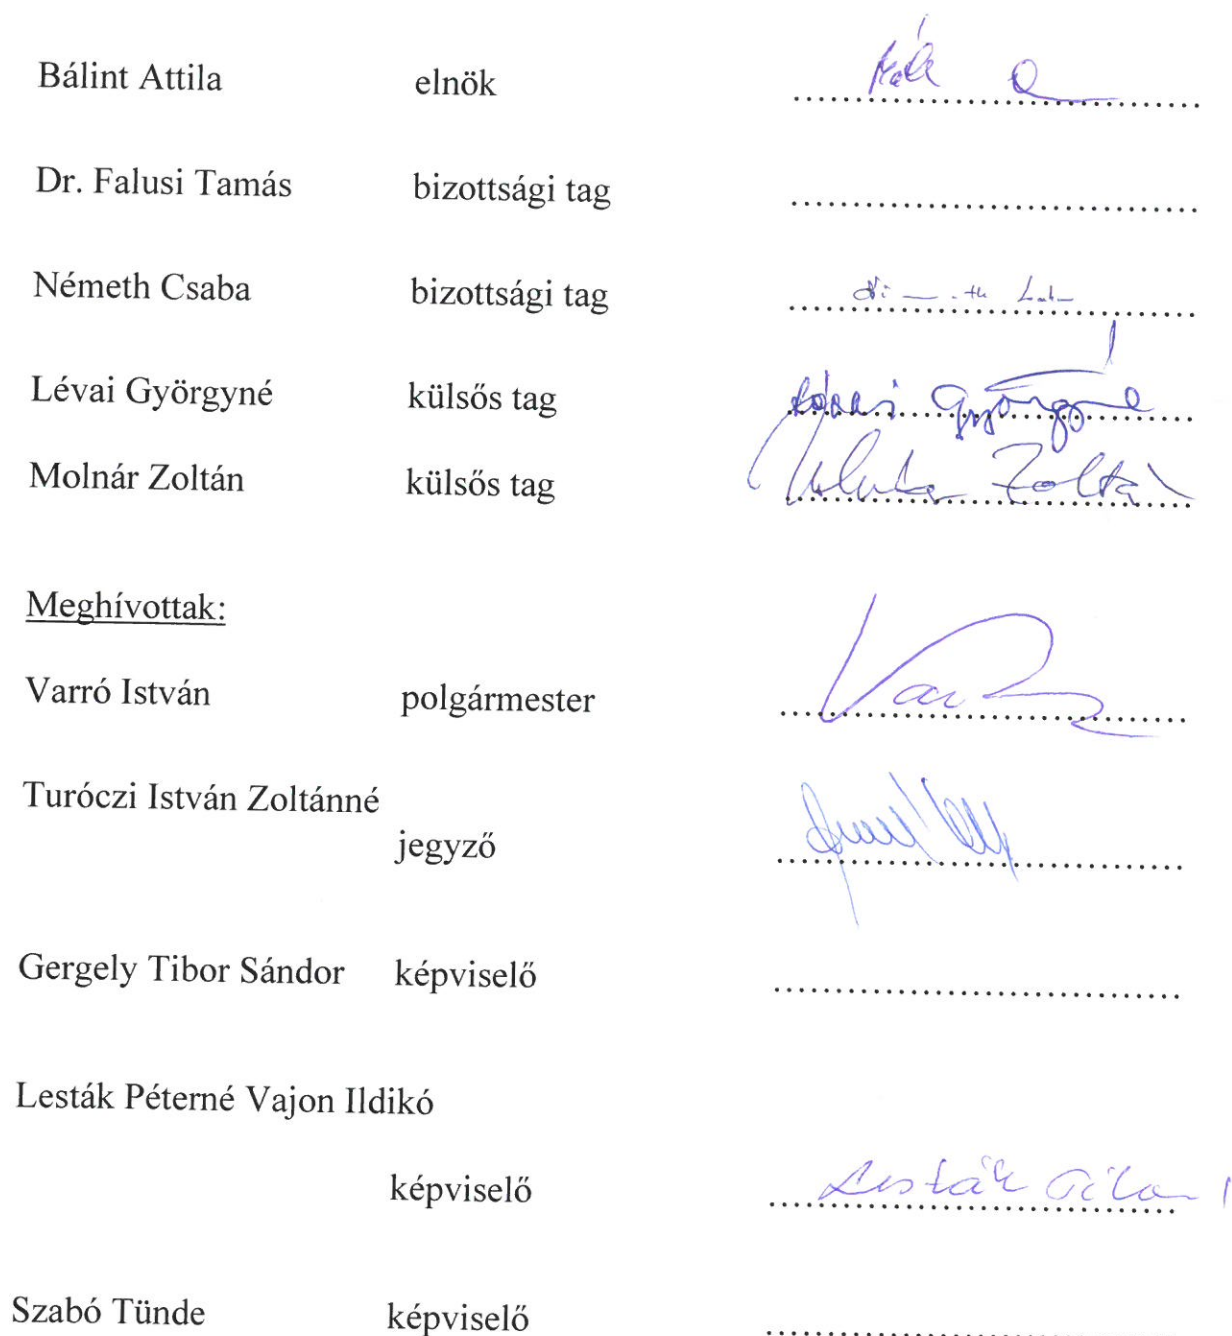 Bálint Attila elnök
Dr. Falusi Tamás bizottsági tag ................................
Németh Csaba bizottsági tag
Lévai Györgyné külsős tag Lévai Györgyné
Molnár Zoltán külsős tag Molnár Zoltán
Meghívottak:
Varró István polgármester
Turóczi István Zoltánné
jegyző
Gergely Tibor Sándor képviselő ................................
Lesták Péterné Vajon Ildikó
képviselő Lesták
Szabó Tünde képviselő ................................